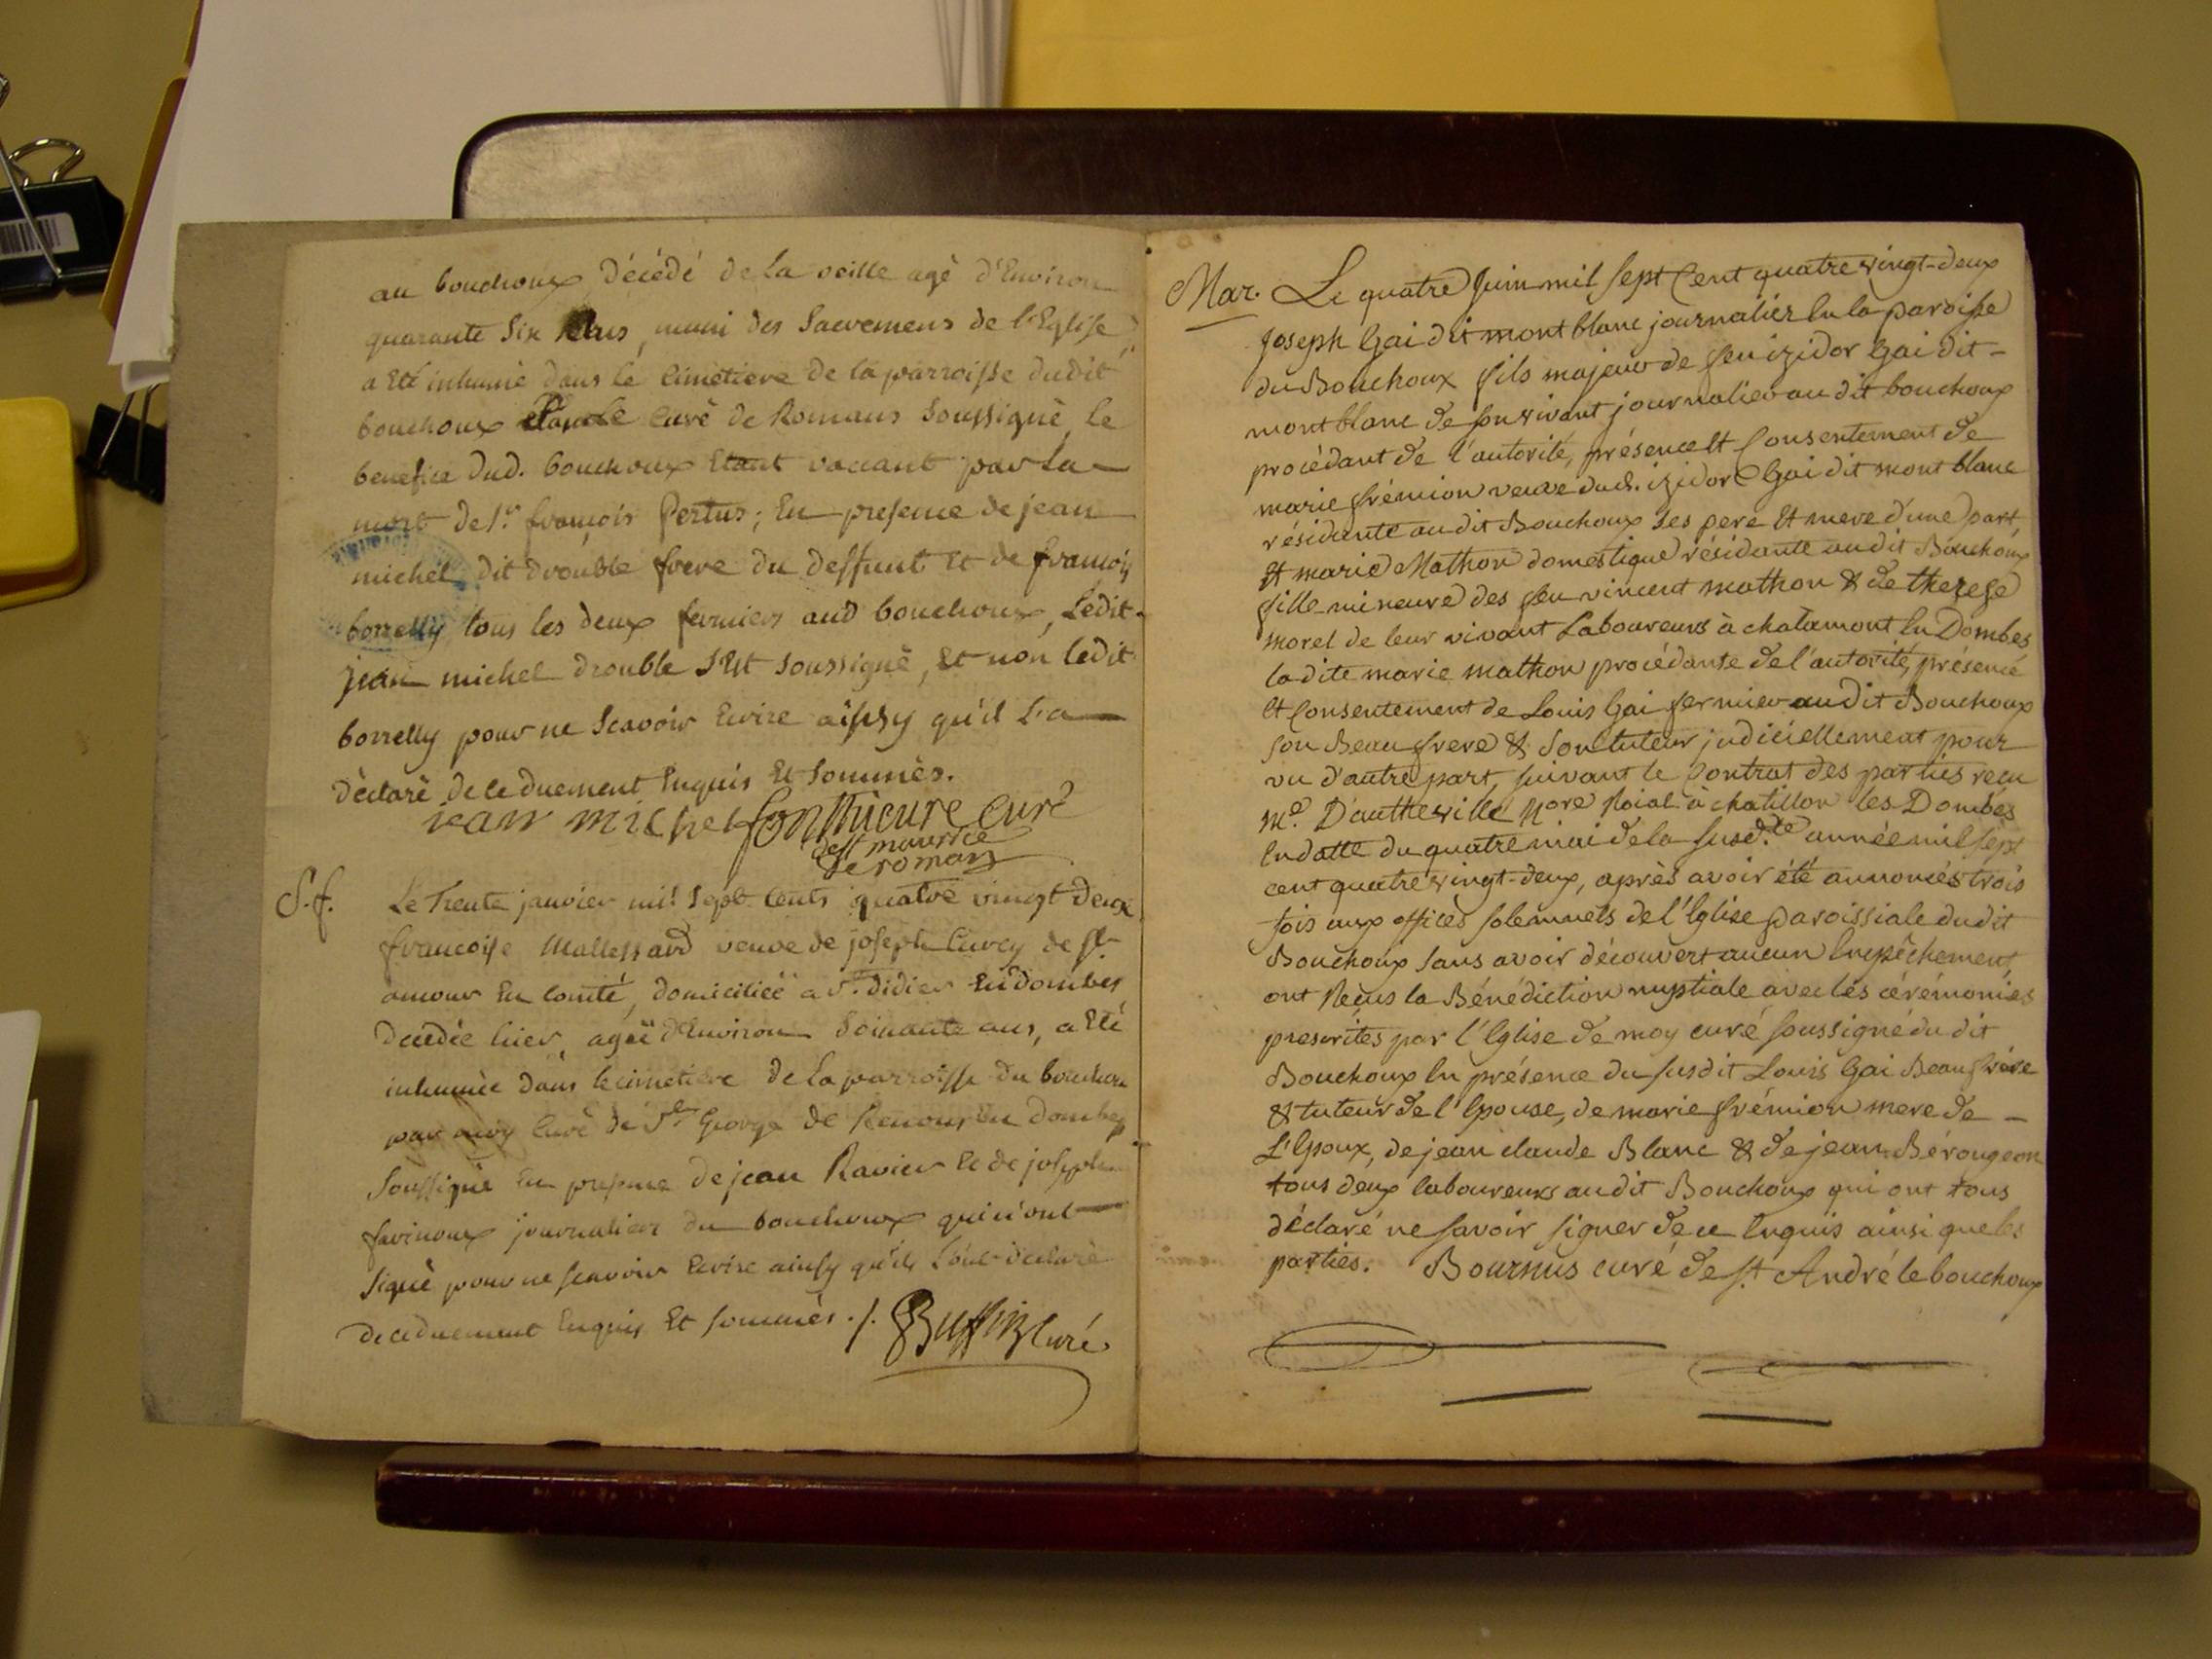 au bouchoux décédé de la veille agé d'Environ
quarante Six ans, muni des Sacremens de l'Eglise,
a Eté inhumé dans le cimetiere de la parroisse dudit
bouchoux par le curé de Romans Soussigné, le
benefice dud. bouchoux Etant vaccant par la
mort de Sr. françois Pertus; En presence de jean
michel dit drouble frere du deffunt et de françois
borrelly tous les deux fermiers aud bouchoux, Ledit
jean michel drouble s'Est soussigné, Et non ledit
borrelly pour ne Scavoir Ecrire aissy qu'il L'a
déclaré de ce duement Enquis Et Sommés.
jean michel curé
de st maurice
de romans
S.f. Le Trente janvier mil Sept Cents quatre vingt Deux
francoise Mallessard veuve de joseph Cuvey de St.
amour En comté, domiciliée a St. didier En dombes
décédée hier, ageé d'Environ Soixante ans, a Eté
inhumée dans le cimetiere de la parroisse du bouchoux
par moy Curé de St George de Renons En dombes
Soussigné En presence de jean Ravier Et de joseph
farinoux journaliers du bouchoux qui n'ont
signé pour ne scavoir Ecrire ainsy qu'ils L'ont declaré
de ce duement Enquis Et sommés ./. Buffin Curé
Mar. Le quatre Juin mil Sept Cent quatre vingt-deux
Joseph Gai dit mont blanc journalier En la paroisse
du Bouchoux fils majeur de feu izidor Gai dit-
mont blanc de son vivant journalier au dit bouchoux
procédant de l'autorité, présence Et Consentement de
marie frémion veuve dud. izidor Gai dit mont blanc
résidante au dit Bouchoux ses pere Et mere d'une part,
Et marie Mathon domestique résidante au dit Bouchoux
fille mineure des feu vincent mathon & de therese
morel de leur vivant Laboureurs à chatamont En Dombes
la dite marie mathon procédante de l'autorité, présence
Et Consentement de Louis Gai fermier au dit Bouchoux
son Beau frere & son tuteur judiciellement pour
vu d'autre part, suivant le Contrat des parties reçu
Me. D'autheville Nore Roial à chatillon les Dombes
En datte du quatre mai de la susd.te année mil sept
cent quatre vingt-deux, après avoir été annoncés trois
fois aux offices solemnels de l'Eglise paroissiale du dit
Bouchoux sans avoir découvert aucun Empêchement,
ont Reçus la Bénédiction nuptiale avec les cérémonies
prescrites par l'Eglise de moy curé soussigné du dit
Bouchoux En présence du susdit Louis Gai Beau frère
& tuteur de l'Epouse, de marie frémion mere de -
L'Epoux, de jean claude Blanc & de jean Bérougeon
tous deux laboureurs au dit Bouchoux qui ont tous
déclaré ne savoir signer de ce Enquis ainsi que les
parties. Bournus curé de St. André le bouchoux